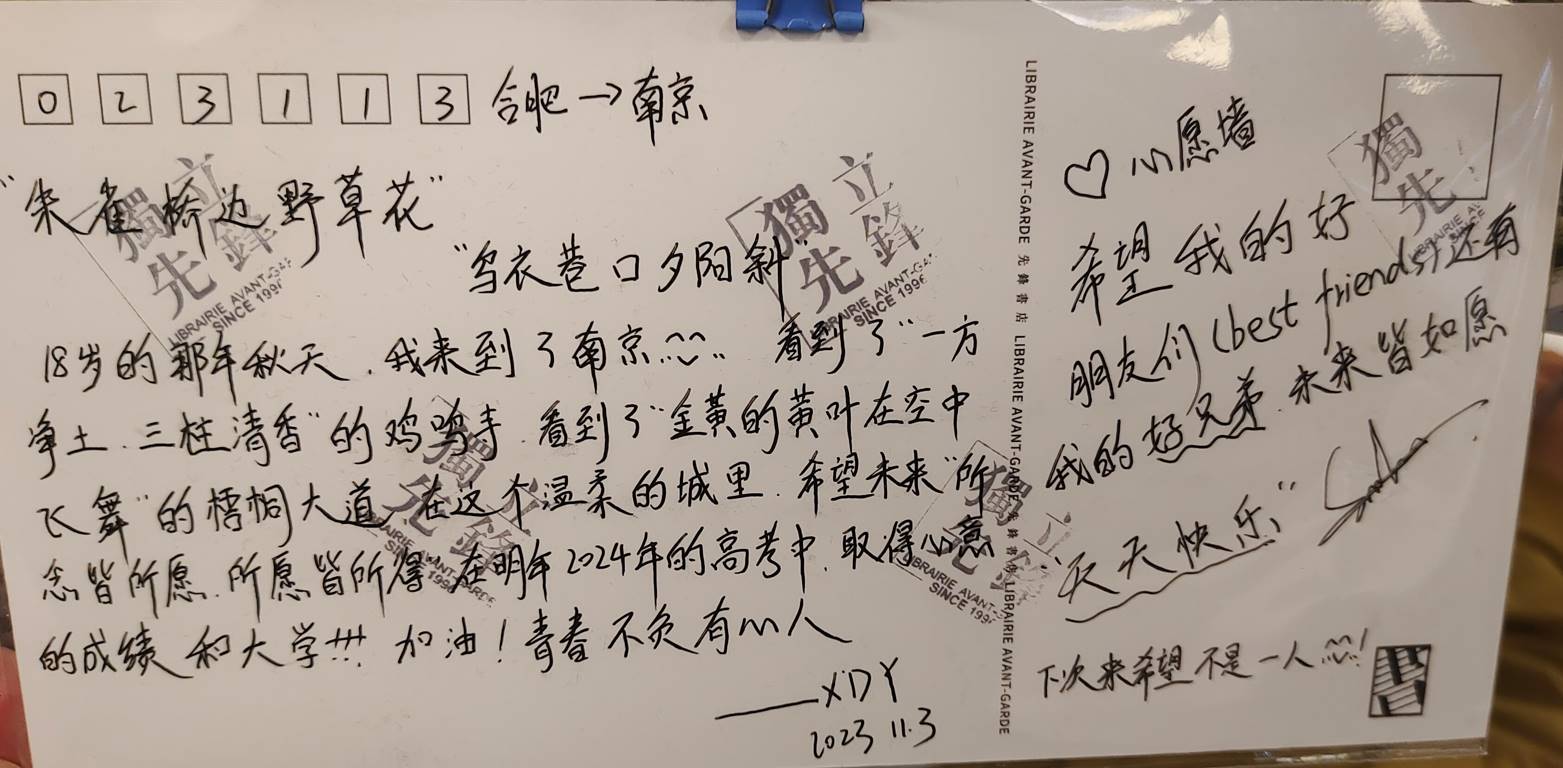 023113 合肥→南京
"朱雀桥边野草花"
"乌衣巷口夕阳斜"
18岁的那年秋天.我来到了南京 看到了"一方
净土.三柱清香"的鸡鸣寺.看到了"金黄的黄叶在空中
飞舞"的梧桐大道,在这个温柔的城里.希望未来"所
念皆所愿.所愿皆所得 在明年2024年的高考中.取得心意
的成绩和大学!!! 加油!青春不负有心人
——XDY
2023 11.3
♡心愿墙
希望我的好
朋友们(best friends)还有
我的好兄弟.未来皆如愿
"天天快乐"
下次来希望不是一人!
LIBRAIRIE AVANT-GARDE 先鋒書店 LIBRAIRIE AVANT-GARDE 先鋒書店 LIBRAIRIE AVANT-GARDE
獨立
先鋒
LIBRAIRIE AVANT-GA
SINCE 1996
獨立
先鋒
LIBRAIRIE AVANT-GA
SINCE 1996
獨
先
LIBRAIRIE AV
SINCE
獨立
先鋒
LIBRAIRIE AVANT-GARDE
1996
獨立
先鋒
LIBRAIRIE AVANT-
SINCE 199